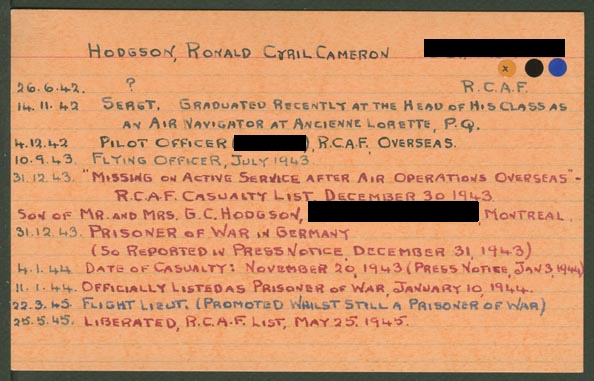 HODGSON, RONALD CYRIL CAMERON
x
26.6.42. ? R.C.A.F.
14.11.42 SERGT. GRADUATED RECENTLY AT THE HEAD OF HIS CLASS AS
AN AIR NAVIGATOR AT ANCIENNE LORETTE, P.Q.
4.12.42 PILOT OFFICER ( ), R.C.A.F. OVERSEAS.
10.9.43. FLYING OFFICER, JULY 1943.
31.12.43. "MISSING ON ACTIVE SERVICE AFTER AIR OPERATIONS OVERSEAS"-
R.C.A.F. CASUALTY LIST, DECEMBER 30 1943.
SON OF MR. AND MRS. G.C. HODGSON, MONTREAL.
31.12.43. PRISONER OF WAR IN GERMANY
(SO REPORTED IN PRESS NOTICE, DECEMBER 31, 1943)
4.1.44. DATE OF CASUALTY: NOVEMBER 20, 1943 (PRESS NOTICE, JAN 3, 1944)
11.1.44. OFFICIALLY LISTED AS PRISONER OF WAR, JANUARY 10, 1944.
22.3.45. FLIGHT LIEUT. (PROMOTED WHILST STILL A PRISONER OF WAR)
25.5.45. LIBERATED, R.C.A.F. LIST, MAY 25. 1945.